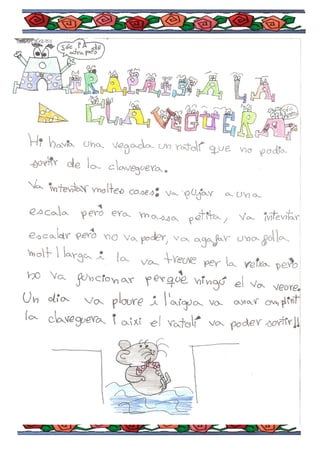 Sóc l'A de
ATRAPATS A LA
CLAVEGUERA
Hi havia una vegada un ratolí que no podia
sortir de la claveguera.
Va intentar moltes coses: va pujar a una
escala però era massa petita, va intentar
escalar però no va poder, va agafar una fulla
molt llarga i la va treure per la reixa però
no va funcionar perquè ningú el va veure.
Un dia va ploure i l'aigua va anar omplint
la claveguera i així el ratolí va poder sortir!!